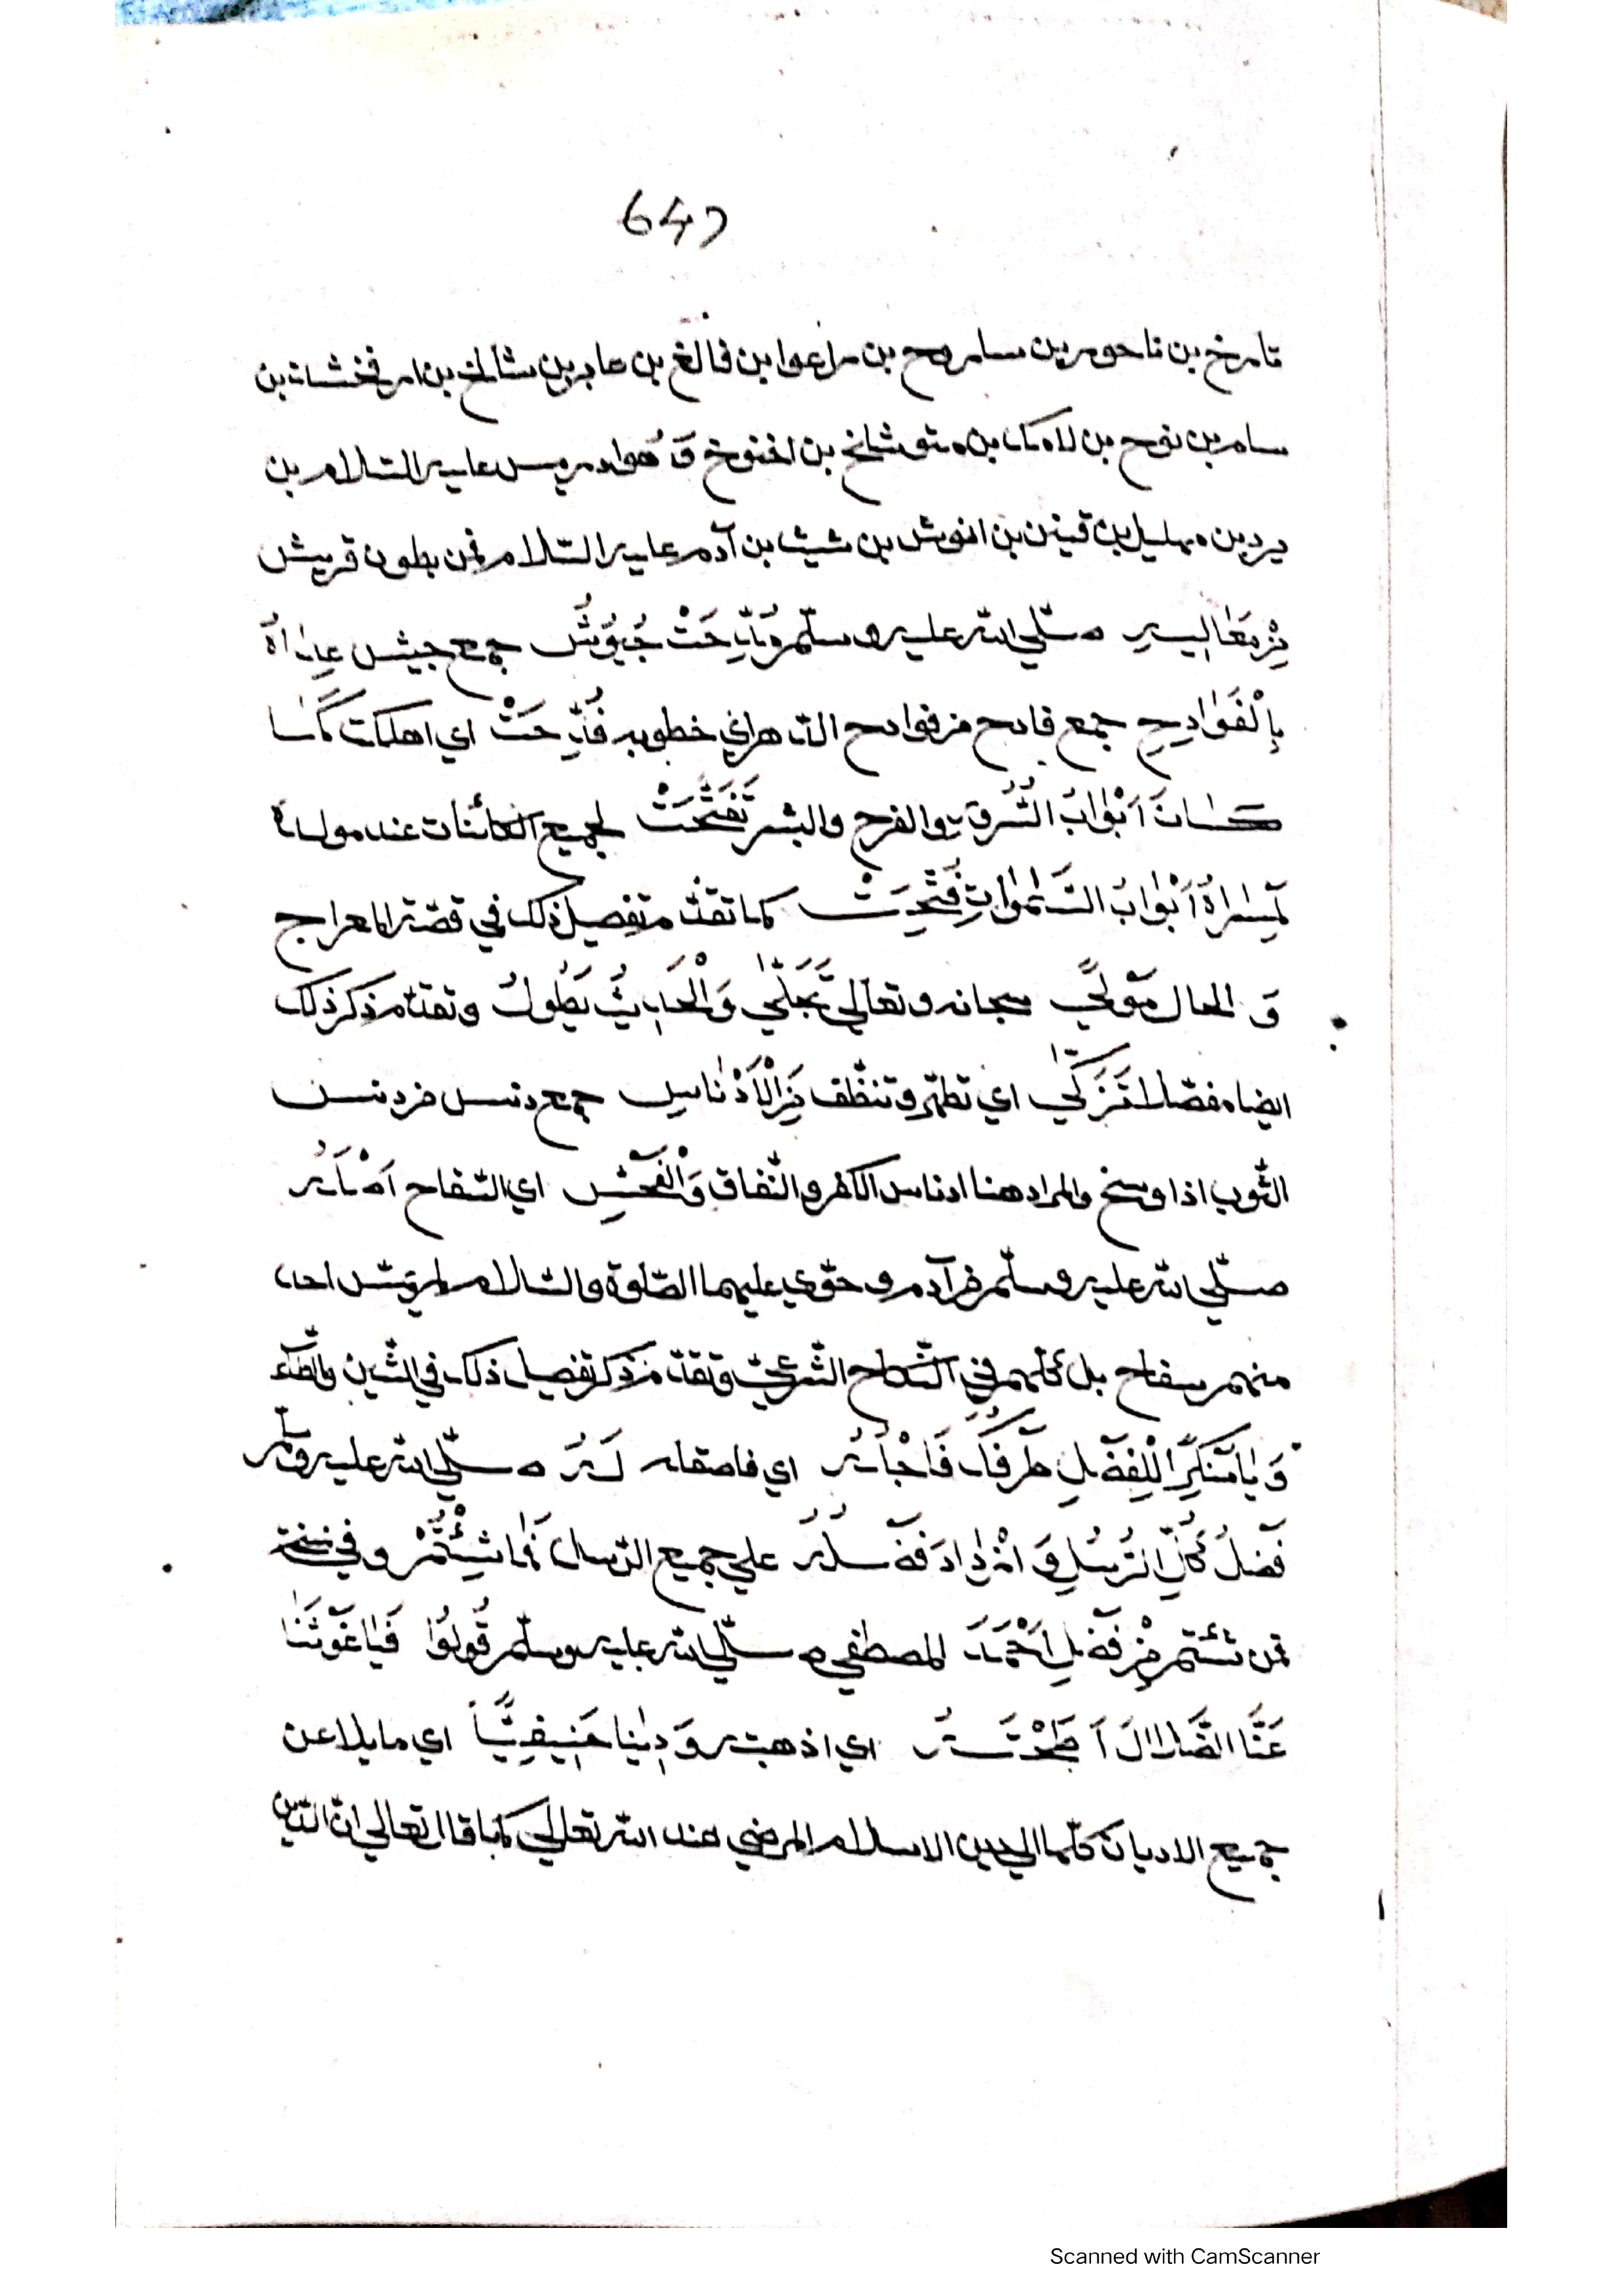 647
تارخ بن ناحور بن ساروح بن راعوا بن فالغ بن عابر بن شالخ بن ارفخشد بن
سام بن نوح بن لامك بن متوشلخ بن اخنوخ وَهو ادريس عليه السّلام بن
يرد بن مهليل بن قينن بن انوش بن شيث بن آدم عليه السّلام فمن بطون قريش
صلّي الله عليه وسلّم جُيُوْشُ جمع جيش عِدٰاهُ
بِالْفَوٰادِحِ جمع فادح من فوادح الدّهر اي خطوبه فُدِّحَتْ اي اهلكت كَمٰا
اَبْوٰابُ والفرح والبشر تَفَتَّحَتْ لجميع الكائنات عند مولده
لِمَسْرٰاهُ اَبْوٰابُ السَّمٰوٰاتِ فُتِّحَتْ كما تقدّم تفصيل ذلك في قصّة المعراج
وَ الحال مَوْلًي سبحانه وتعالي تَجَلّٰي وَالْحَدِيْثُ يَطُولُ وتقدّم ذكر ذلك
ايضا مفصّلا تَزَكّٰي اي تطهّر وتنظّف مِنَ الْاَدْنٰاسِ جمع دنس من دنس
الثّوب اذا وسخ والمراد هنا ادناس الكفر والنّفاق وَالْفُحْشِ اي السّفاح اَصْلُهُ
صلّي الله عليه وسلّم من آدم وحوّي عليهما الصّلوة والسّلام لم يمسّ احد
منهم بسفاح بل كلّهم في النّكاح الشّرعيّ وتقدّم ذكر تفصيل ذلك في الشّين والطّاء
وَيٰا مُنْكِرًا لِلْفَضْلِ طَرْفُكَ فَاجْلُهُ اي فاصقله لَهُ صلّي الله عليه وسلّم
فَضْلُ كُلِّ الرُّسُلِ وَازْدٰادَ فَضْلُهُ علي جميع الرّسل فَمٰا شِئْتُمْ وفي نسخة
فمن شئتم مِنْ فَضْلِ اَحْمَدَ المصطفي صلّي الله عليه وسلّم قُولُوْا فَيٰا غَوْثَنٰا
عَنَّا الضَّلٰالَ اَطَحْتَهُ اي اذهبته وَدِيْنًا حَنِيفِيًّا اي مايلا عن
جميع الاديان كلّها الي دين الاسلام المرضي عند الله تعالي كما قال تعالي انّ الدّين
Scanned with CamScanner